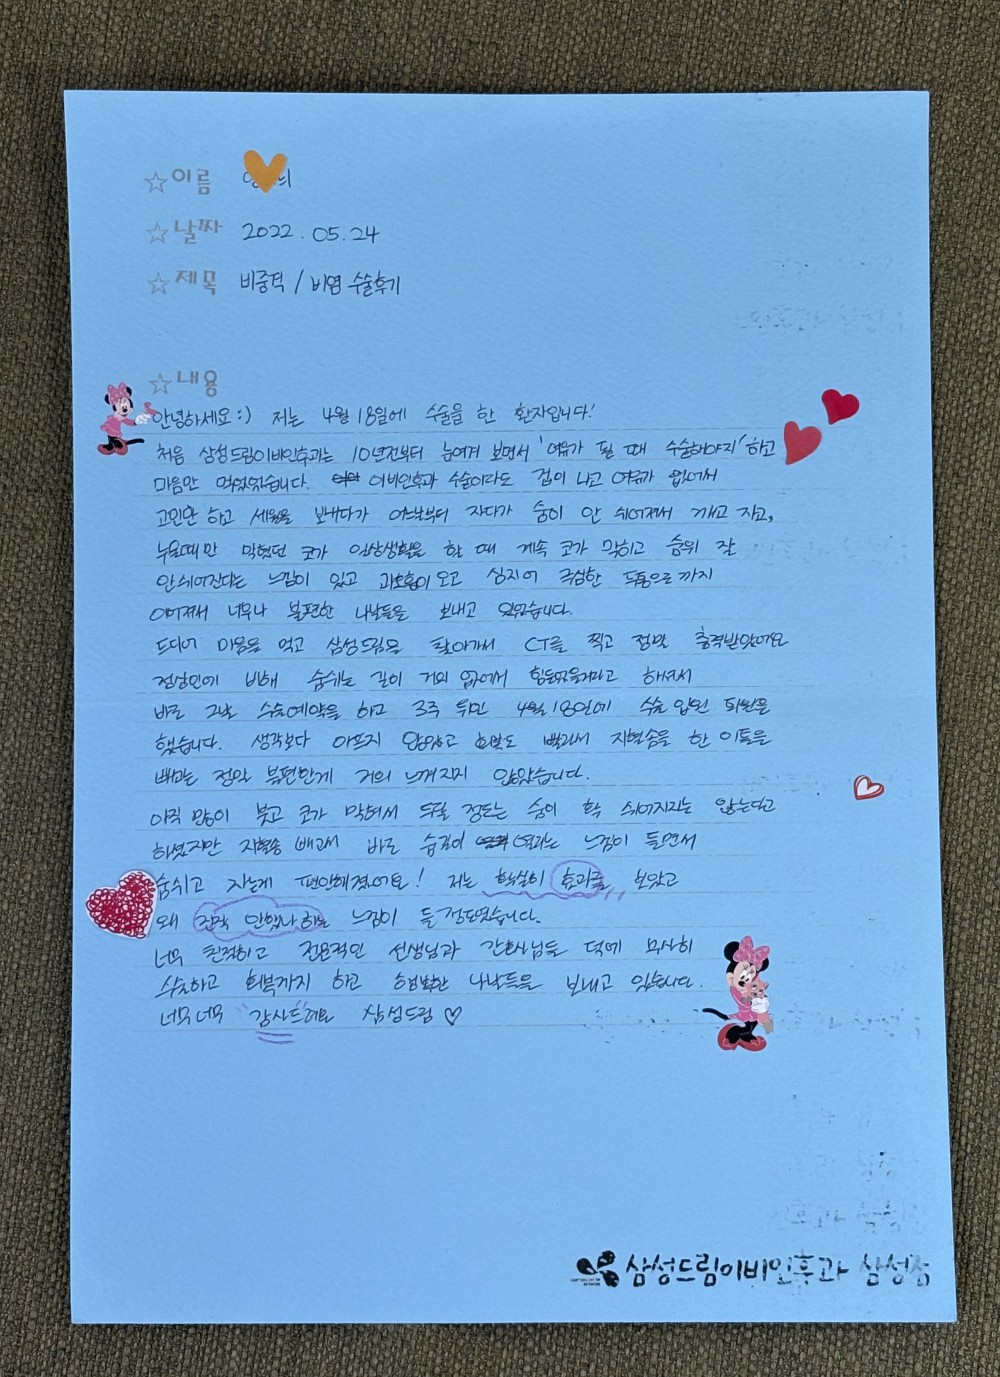 ☆이름
☆날짜 2022. 05. 24
☆제목 비중격 / 비염 수술후기
☆내용
안녕하세요 :) 저는 4월 18일에 수술을 한 환자입니다!
처음 삼성드림이비인후과는 10년전부터 눈여겨 보면서 '여유가 될 때 수술해야지' 하고
마음만 먹었었습니다. 이비인후과 수술이라도 겁이 나고 여유가 없어서
고민만 하고 세월을 보내다가 어느날부터 자다가 숨이 안 쉬어져서 깨고 자고,
누울때만 막혔던 코가 일상생활을 할 때 계속 코가 막히고 숨쉬 잘
안쉬어진다는 느낌이 있고 과호흡이 오고 심지어 극심한 두통으로까지
이어져서 너무나 불편한 나날들을 보내고 있었습니다.
드디어 마음을 먹고 삼성드림을 찾아가서 CT를 찍고 정말 충격받았어요
정상인에 비해 숨쉬는 길이 거의 없어서 힘들었을거라고 하셔서
바로 그날 수술예약을 하고 3주 뒤인 4월 18일에 수술 입원 퇴원을
했습니다. 생각보다 아프지 않았고 회복도 빨라서 지혈솜을 한 이틀을
빼고는 정말 불편한게 거의 느껴지지 않았습니다.
아직 많이 붓고 코가 막혀서 두달 정도는 숨이 확 쉬어지지는 않는다고
하셨지만 지혈솜 빼고서 바로 숨길이 열리는 느낌이 들면서
숨쉬고 자는게 편안해졌어요! 저는 확실히 효과를 보았고
왜 진작 안했나 하는 느낌이 들 정도였습니다.
너무 친절하고 전문적인 선생님과 간호사님들 덕에 무사히
수술하고 회복까지 하고 행복한 나날들을 보내고 있습니다.
너무너무 "감사드려요" 삼성드림 ♡
삼성드림이비인후과 삼성점